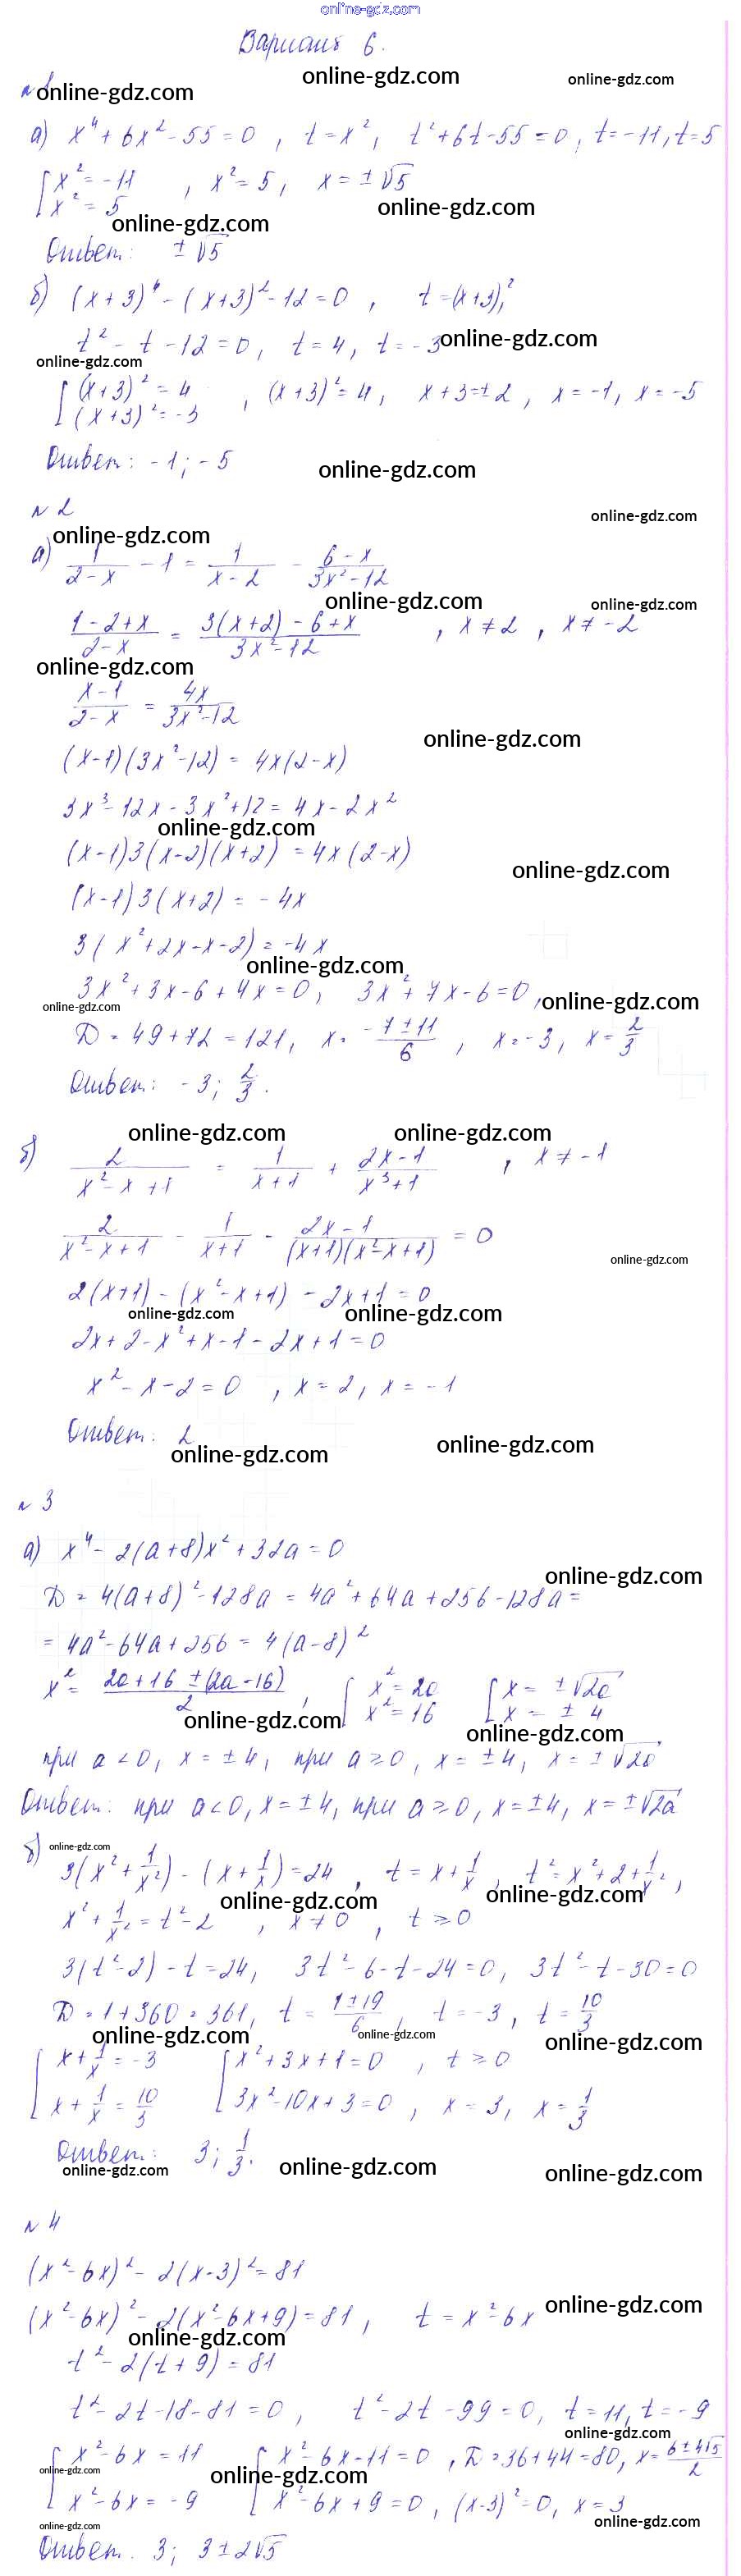 online-gdz.com
Вариант 6.
online-gdz.com
online-gdz.com
№1
online-gdz.com
а) x⁴ + 6x² - 55 = 0 , t = x², t² + 6t - 55 = 0, t = -11, t = 5
[x² = -11
[x² = 5 , x² = 5, x = ±√5
online-gdz.com
online-gdz.com
Ответ: ±√5
б) (x+3)⁴ - (x+3)² - 12 = 0 , t = (x+3)²,
t² - t - 12 = 0, t = 4, t = -3
online-gdz.com
online-gdz.com
[(x+3)² = 4
[(x+3)² = -3 , (x+3)² = 4, x+3 = ±2, x = -1, x = -5
Ответ: -1; -5
online-gdz.com
№2
online-gdz.com
online-gdz.com
а) 1/(2-x) - 1 = 1/(x-2) - (6-x)/(3x²-12)
online-gdz.com
online-gdz.com
(1-2+x)/(2-x) = (3(x+2)-6+x)/(3x²-12) , x ≠ 2, x ≠ -2
online-gdz.com
(x-1)/(2-x) = 4x/(3x²-12)
online-gdz.com
(x-1)(3x²-12) = 4x(2-x)
3x³-12x-3x²+12 = 4x-2x²
online-gdz.com
(x-1)3(x-2)(x+2) = 4x(2-x)
online-gdz.com
(x-1)3(x+2) = -4x
3(x²+2x-x-2) = -4x
online-gdz.com
3x²+3x-6+4x=0, 3x²+7x-6=0,
online-gdz.com
online-gdz.com
D = 49+72 = 121, x = (-7±11)/6 , x = -3, x = 2/3
Ответ: -3; 2/3.
online-gdz.com
online-gdz.com
б) 2/(x²-x+1) = 1/(x+1) + (2x-1)/(x³+1) , x ≠ -1
2/(x²-x+1) - 1/(x+1) - (2x-1)/((x+1)(x²-x+1)) = 0
online-gdz.com
2(x+1) - (x²-x+1) - 2x+1 = 0
online-gdz.com
online-gdz.com
2x+2-x²+x-1-2x+1=0
x²-x-2=0 , x=2, x=-1
Ответ: 2
online-gdz.com
online-gdz.com
№3
а) x⁴ - 2(a+8)x² + 32a = 0
online-gdz.com
D = 4(a+8)² - 128a = 4a²+64a+256-128a =
= 4a²-64a+256 = 4(a-8)²
x² = (2a+16±(2a-16))/2 , [x² = 2a [x = ±√2a
[x² = 16 [x = ±4
online-gdz.com
online-gdz.com
при a<0, x=±4, при a≥0, x=±4, x=±√2a
Ответ: при a<0, x=±4, при a≥0, x=±4, x=±√2a
online-gdz.com
б) 3(x²+1/x²) - (x+1/x) = 24 , t = x+1/x , t² = x²+2+1/x²,
online-gdz.com
online-gdz.com
x²+1/x² = t²-2 , x ≠ 0 , t ≥ 0
3(t²-2)-t=24, 3t²-6-t-24=0, 3t²-t-30=0
D = 1+360 = 361, t = (1±19)/6 , t = -3, t = 10/3
online-gdz.com
online-gdz.com
online-gdz.com
[x+1/x = -3 [x²+3x+1=0 , t ≥ 0
[x+1/x = 10/3 [3x²-10x+3=0 , x=3, x=1/3
Ответ: 3; 1/3.
online-gdz.com
online-gdz.com
online-gdz.com
№4
(x²-6x)² - 2(x-3)² = 81
online-gdz.com
(x²-6x)² - 2(x²-6x+9) = 81, t = x²-6x
online-gdz.com
t² - 2(t+9) = 81
t²-2t-18-81=0, t²-2t-99=0, t=11, t=-9
online-gdz.com
[x²-6x=11 [x²-6x-11=0 , D=36+44=80, x=(6±4√5)/2
online-gdz.com
online-gdz.com
[x²-6x=-9 [x²-6x+9=0, (x-3)²=0, x=3
online-gdz.com
online-gdz.com
Ответ. 3; 3±2√5